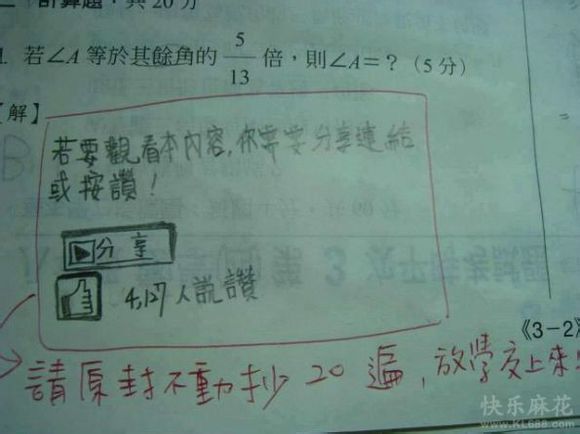 計算題，共 20 分
1. 若∠A 等於其餘角的 5/13 倍，則∠A=？（5 分）
【解】
若要觀看本內容,你需要分享連結
或按讚！
分享
4,127 人說讚
《3-2》
請原封不動抄 20 遍，放學交上來
快乐麻花
www.KL688.com